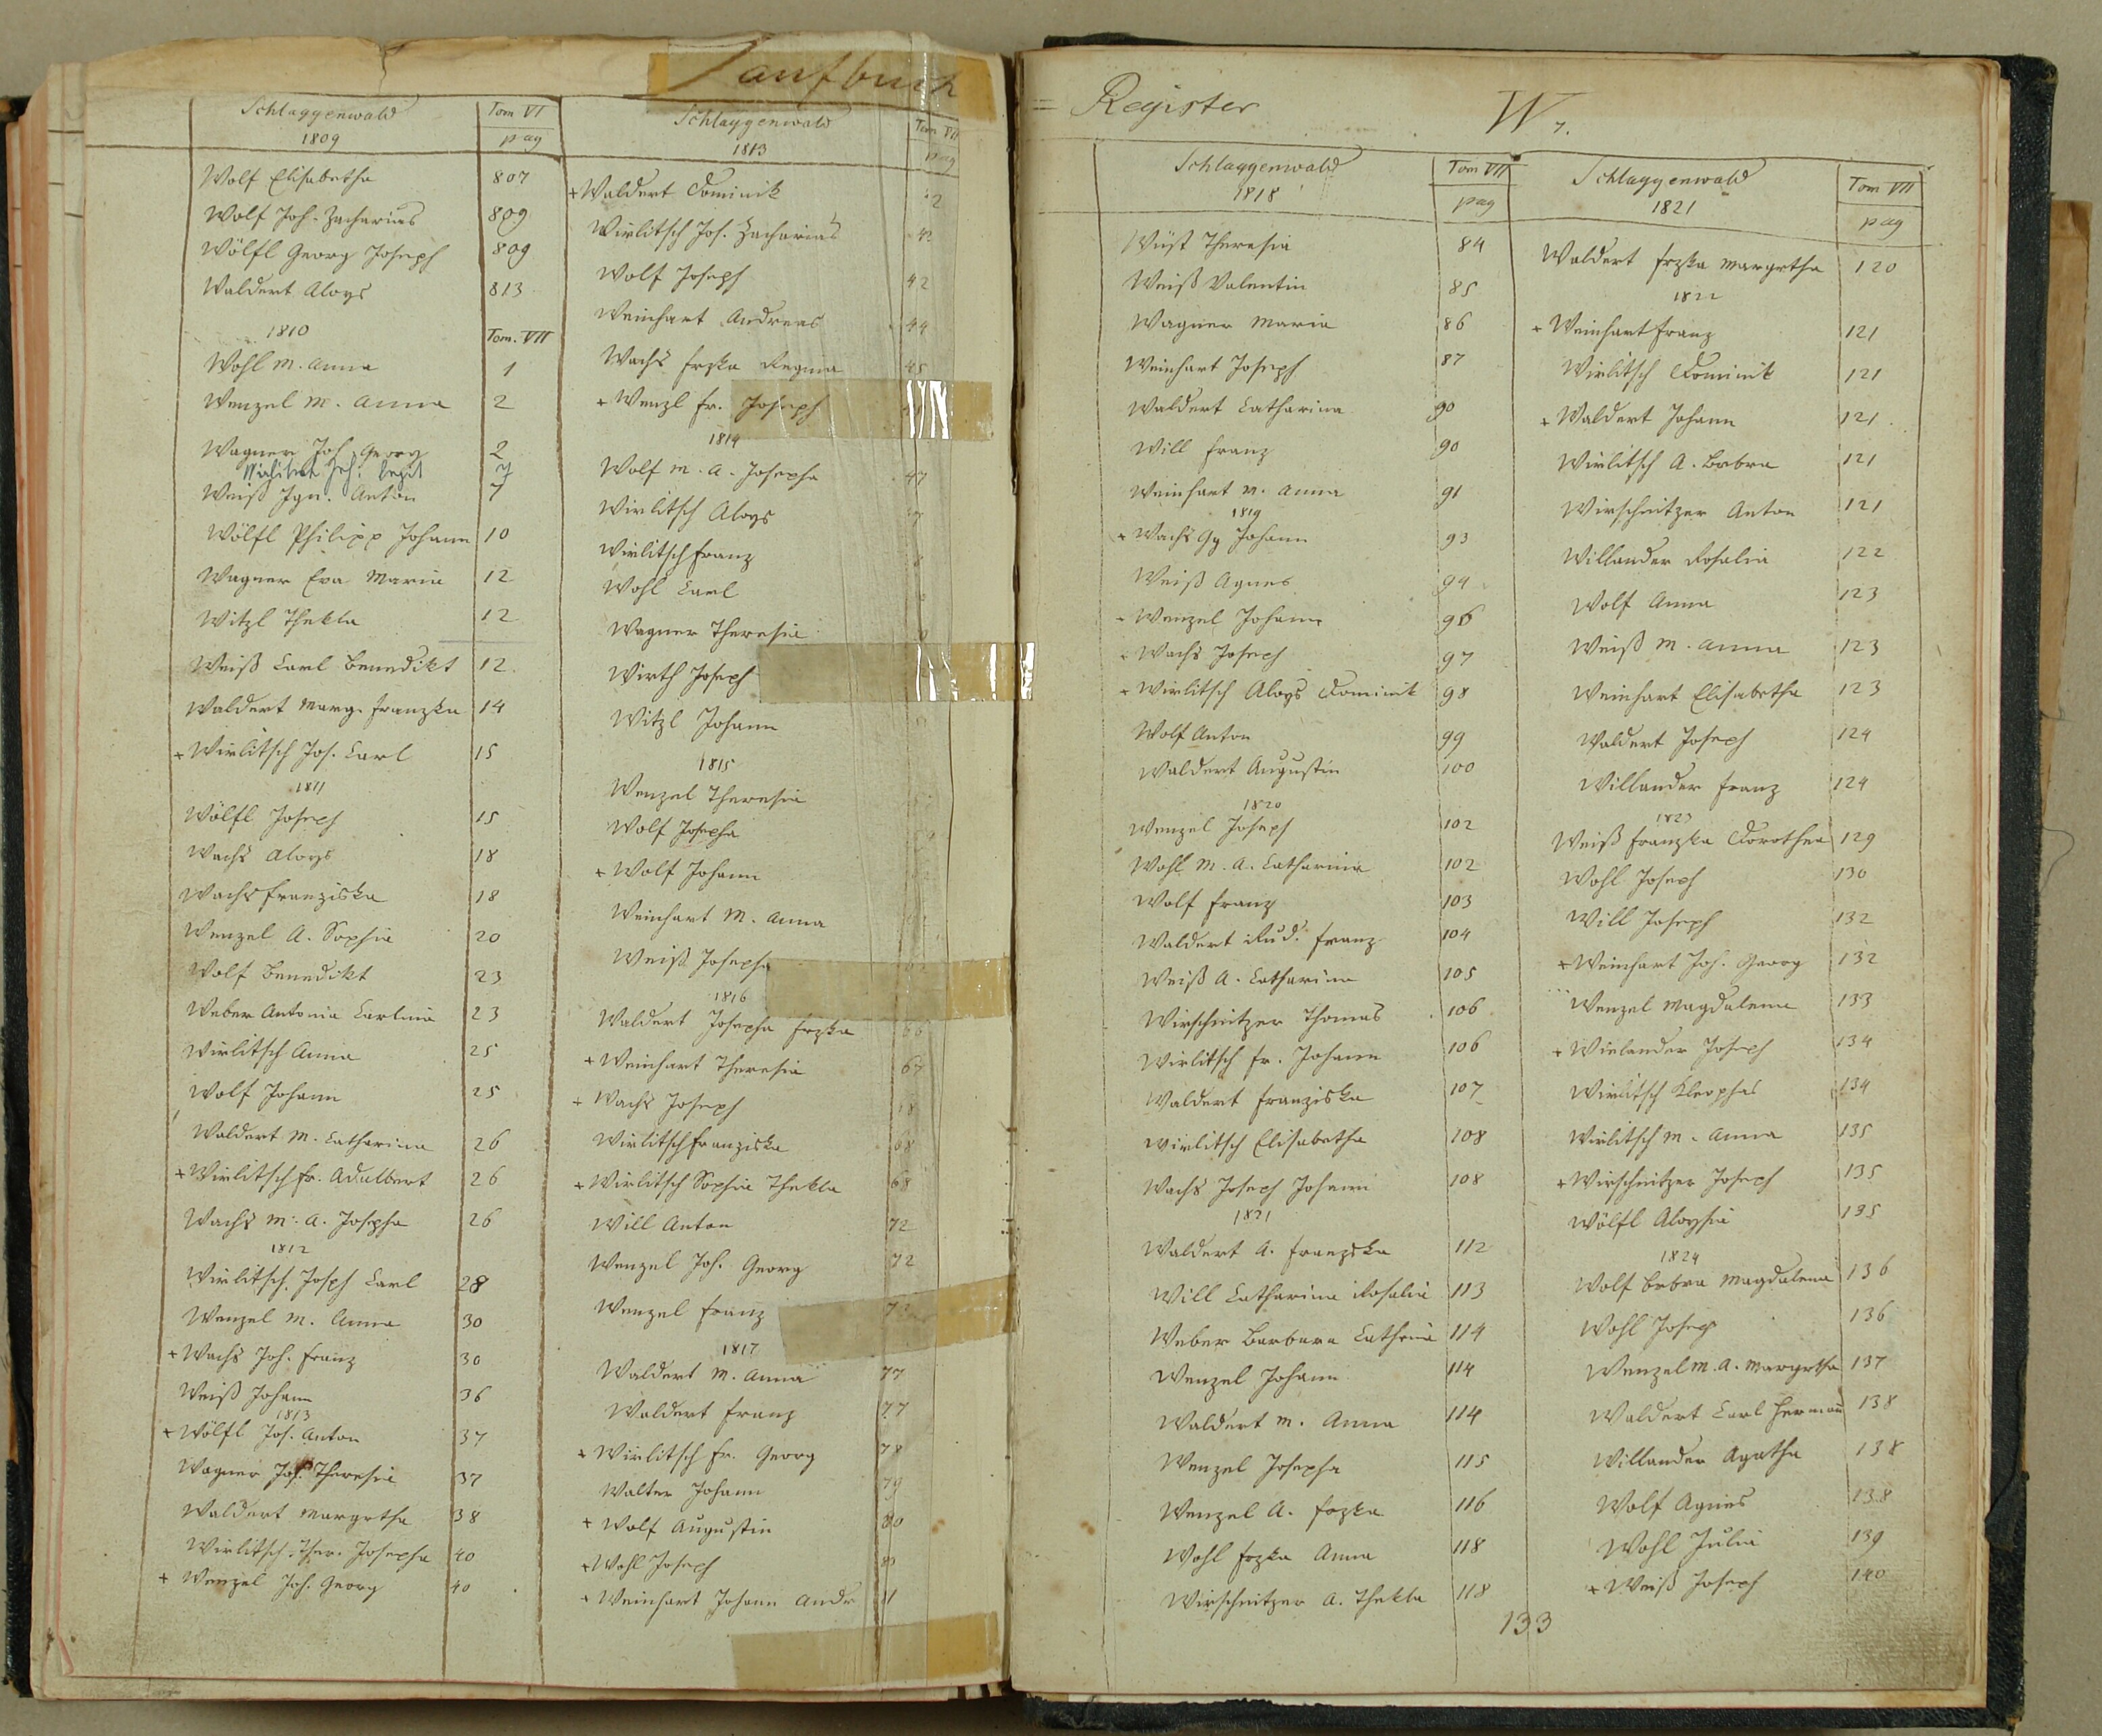 Taufbuch
Schlaggenwald
1809
Tom VI
pag
Wolf Elisabetha 807
Wolf Joh. Zacharias 809
Wölfl Georg Joseph 809
Waldert Aloys 813
1810 Tom. VII
Wohl M. Anna 1
Wenzel M. Anna 2
Wagner Joh. Georg 2
7
Weiß Ign. Anton 7
Wölfl Philipp Johann 10
Wagner Eva Maria 12
Witzl Thekla 12
Weiß Carl Benedikt 12
Waldert Marg. Franzka 14
+ Wirlitsch Jos. Carl 15
1811
Wölfl Joseph 15
Wachs Aloys 18
Wachs Franziska 18
Wenzel A. Sophia 20
Wolf Benedikt 23
Weber Antonia Carlina 23
Wirlitsch Anna 25
Wolf Johann 25
Waldert M. Catharina 26
+ Wirlitsch Fr. Adalbert 26
Wachs M. A. Josepha 26
1812
Wirlitsch Josph Carl 28
Wenzel M. Anna 30
+ Wachs Joh. Franz 30
Weiß Johann 36
1813
+ Wölfl Jos. Anton 37
Wagner Jos. Theresia 37
Waldert Margrtha 38
Wirlitsch Ther. Josepha 40
+ Wenzel Joh. Georg 40
Schlaggenwald
1813
Tom VII
pag
+ Waldert Dominik 42
Wirlitsch Jos. Zacharias 42
Wolf Joseph 42
Weinhart Andreas 44
Wachs Frzka Regina 45
+ Wenzl Fr. Joseph
1814
Wolf M. A. Josepha 47
Wirlitsch Aloys
Wirlitsch Franz
Wohl Carl
Wagner Theresia
Wirth Joseph
Witzl Johann
1815
Wenzel Theresia
Wolf Josepha
+ Wolf Johann
Weinhart M. Anna
Weiß Josepha
1816
Waldert Josepha Frzka 66
+ Weinhart Theresia 67
+ Wachs Joseph 68
Wirlitsch Franziska 68
+ Wirlitsch Sophia Thekla 68
Will Anton 72
Wenzel Joh. Georg 72
Wenzel Franz
1817
Waldert M. Anna 77
Waldert Franz 77
+ Wirlitsch Fr. Georg 78
Walter Johann 79
+ Wolf Augustin 80
+ Wohl Joseph 80
+ Weinhart Johann Andr
= Register W 7.
Schlaggenwald
1818
Tom VII
pag
Wüst Theresia 84
Weiß Valentin 85
Wagner Maria 86
Weinhart Joseph 87
Waldert Catharina 90
Will Franz 90
Weinhart M. Anna 91
1819
+ Wachs Gg Johann 93
Weiß Agnes 94
+ Wenzel Johann 96
+ Wachs Joseph 97
+ Wirlitsch Aloys Dominik 98
Wolf Anton 99
Waldert Augustin 100
1820
Wenzel Joseph 102
Wohl M. A. Catharina 102
Wolf Franz 103
Waldert Rud. Franz 104
Weiß A. Catharina 105
Wirschnitzer Thomas 106
Wirlitsch Fr. Johann 106
Waldert Franziska 107
Wirlitsch Elisabetha 108
Wachs Joseph Johann 108
1821
Waldert A. Franzska 112
Will Catharina Rosalia 113
Weber Barbara Cathrina 114
Wenzel Johann 114
Waldert M. Anna 114
Wenzel Josepha 115
Wenzel A. Frzka 116
Wohl Frzka Anna 118
Wirschnitzer A. Thekla 118
Schlaggenwald
1821
Tom VII
pag
Waldert Frzka Margrtha 120
1822
+ Weinhart Franz 121
Wirlitsch Dominik 121
+ Waldert Johann 121
Wirlitsch A. Barbra 121
Wirschnitzer Anton 121
Willander Rosalia 122
Wolf Anna 123
Weiß M. Anna 123
Weinhart Elisabetha 123
Waldert Joseph 124
Willander Franz 124
1823
Weiß Franzka Dorothea 129
Wohl Joseph 130
Will Joseph 132
+ Weinhart Joh. Georg 132
Wenzel Magdalena 133
+ Wielander Joseph 134
Wirlitsch Kleophas 134
Wirlitsch M. Anna 135
+ Wirschnitzer Joseph 135
Wölfl Aloysia 135
1824
Wolf Brbra Magdalena 136
Wohl Joseph 136
Wenzel M. A. Margrtha 137
Waldert Carl Hermañ 138
Willander Agatha 138
Wolf Agnes 138
Wohl Julia 139
+ Weiß Joseph 140
133